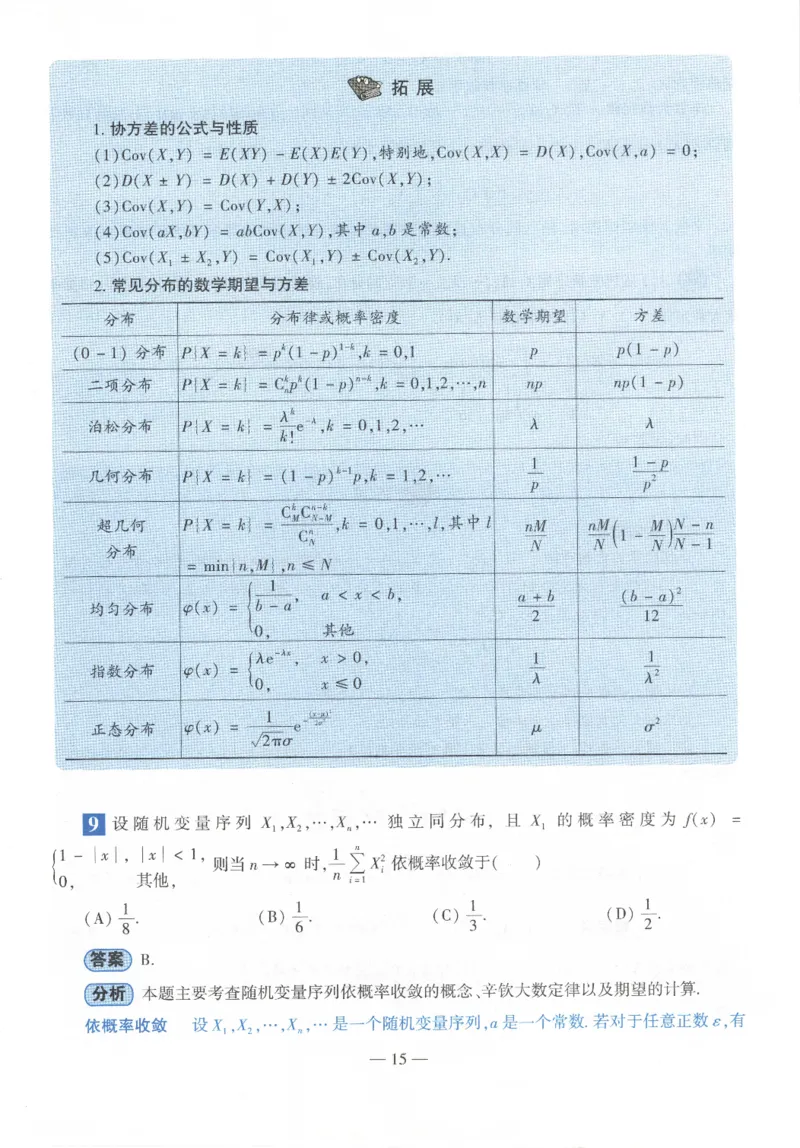 拓展
1. 协方差的公式与性质
(1)Cov(X,Y) = E(XY) - E(X)E(Y),特别地,Cov(X,X) = D(X),Cov(X,a) = 0;
(2)D(X ± Y) = D(X) + D(Y) ± 2Cov(X,Y);
(3)Cov(X,Y) = Cov(Y,X);
(4)Cov(aX,bY) = abCov(X,Y),其中 a,b 是常数;
(5)Cov(X₁ ± X₂,Y) = Cov(X₁,Y) ± Cov(X₂,Y).
2. 常见分布的数学期望与方差
分布 分布律或概率密度 数学期望 方差
(0 - 1) 分布 P{X = k} = p^k(1 - p)^{1-k},k = 0,1 p p(1 - p)
二项分布 P{X = k} = C_n^k p^k(1 - p)^{n-k},k = 0,1,2,…,n np np(1 - p)
泊松分布 P{X = k} = \frac{λ^k}{k!}e^{-λ},k = 0,1,2,… λ λ
几何分布 P{X = k} = (1 - p)^{k-1}p,k = 1,2,… \frac{1}{p} \frac{1 - p}{p^2}
超几何分布 P{X = k} = \frac{C_M^k C_{N-M}^{n-k}}{C_N^n},k = 0,1,…,l,其中 l \frac{nM}{N} \frac{nM}{N}(1 - \frac{M}{N})\frac{N - n}{N - 1}
= min{n,M},n ≤ N
均匀分布 φ(x) = { \frac{1}{b - a}, a < x < b, \frac{a + b}{2} \frac{(b - a)^2}{12}
0, 其他
指数分布 φ(x) = { λe^{-λx}, x > 0, \frac{1}{λ} \frac{1}{λ^2}
0, x ≤ 0
正态分布 φ(x) = \frac{1}{\sqrt{2π}σ}e^{-\frac{(x-μ)^2}{2σ^2}} μ σ^2
9 设随机变量序列 X₁,X₂,…,Xₙ,… 独立同分布, 且 X₁ 的概率密度为 f(x) =
{ 1 - |x|, |x| < 1, 则当 n → ∞ 时, \frac{1}{n}\sum_{i=1}^{n} X_i^2 依概率收敛于( )
0, 其他,
(A) \frac{1}{8}. (B) \frac{1}{6}. (C) \frac{1}{3}. (D) \frac{1}{2}.
答案 B.
分析 本题主要考查随机变量序列依概率收敛的概念、辛钦大数定律以及期望的计算.
依概率收敛 设 X₁,X₂,…,Xₙ,… 是一个随机变量序列,a 是一个常数. 若对于任意正数 ε,有
— 15 —